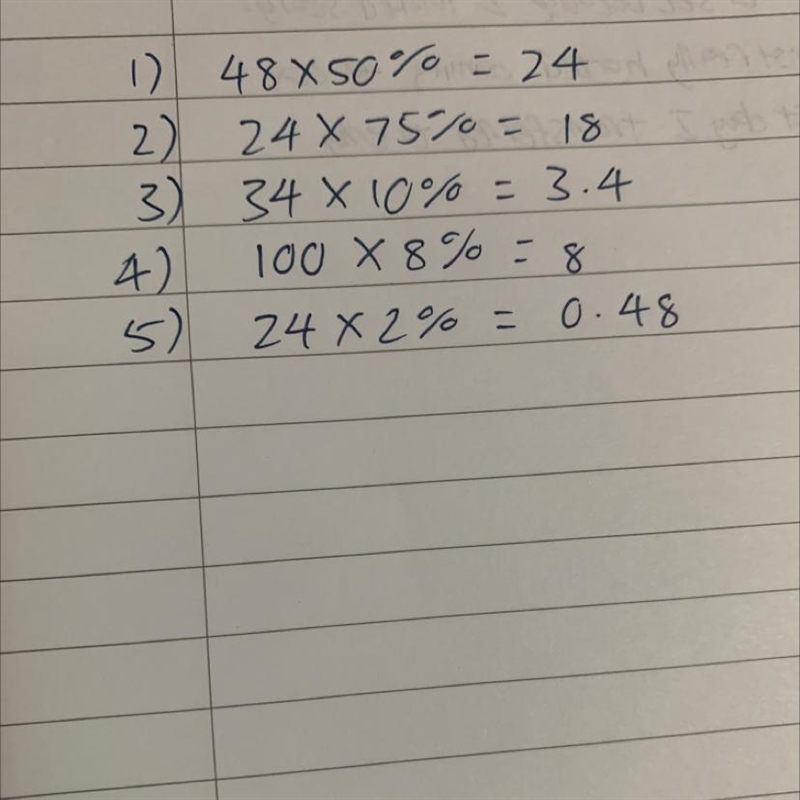 1) 48 X 50% = 24
2) 24 X 75% = 18
3) 34 X 10% = 3.4
4) 100 X 8% = 8
5) 24 X 2% = 0.48